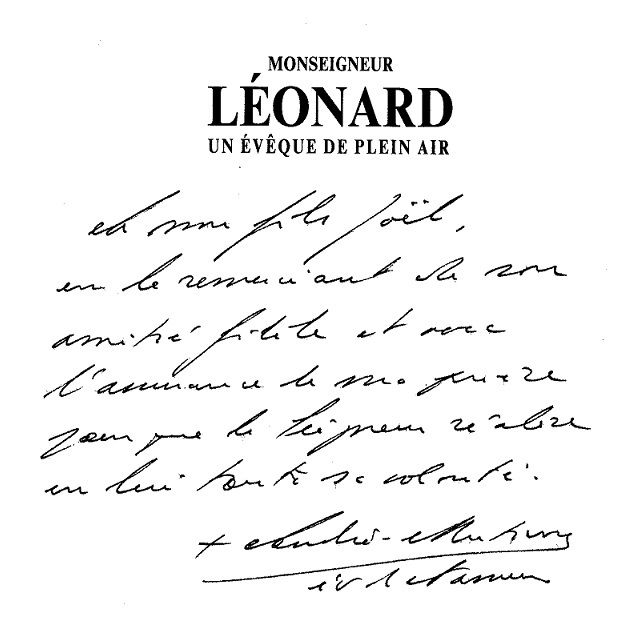 MONSEIGNEUR
LÉONARD
UN ÉVÊQUE DE PLEIN AIR
A mon fils Joël,
en le remerciant de son
amitié fidèle et avec
l'assurance de ma prière
pour que le Seigneur réalise
en lui toute sa volonté.
+ André-Mutien,
év. de Namur